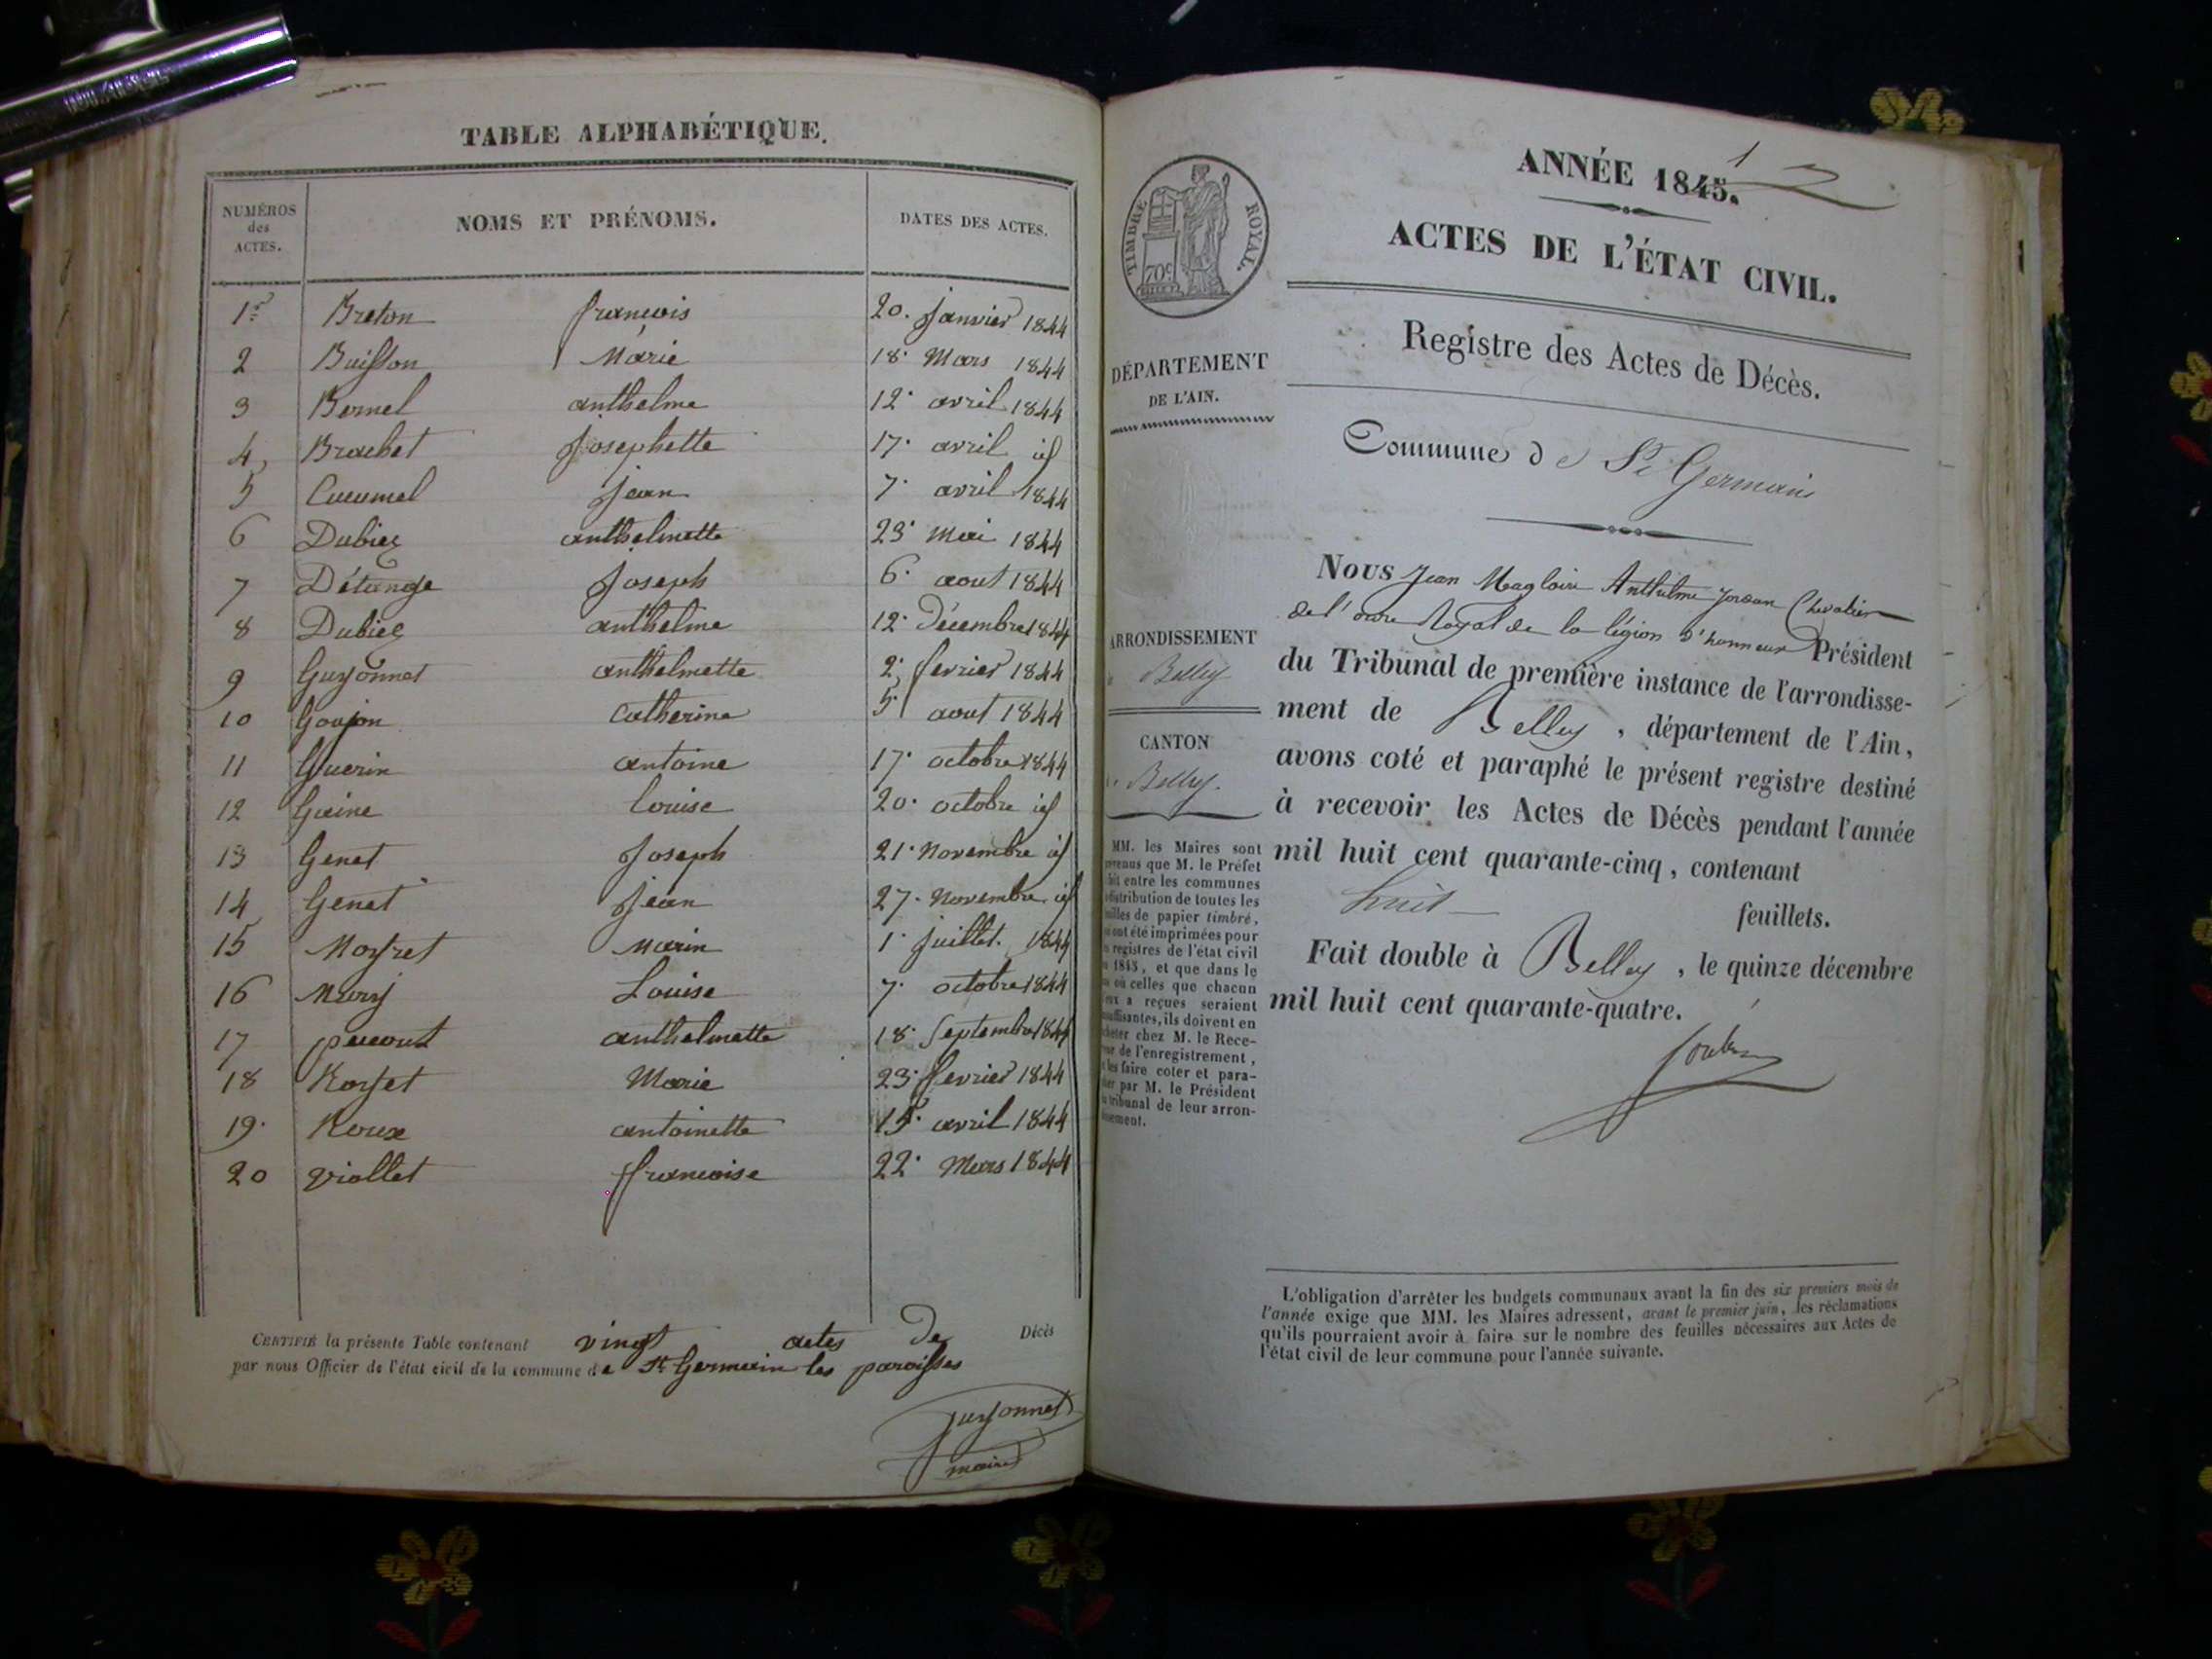 TABLE ALPHABÉTIQUE.
NUMÉROS des ACTES. NOMS ET PRÉNOMS. DATES DES ACTES.
1er Breton françois 20. Janvier 1844
2 Buisson Marie 18. Mars 1844
3 Bernel anthelme 12. avril 1844
4 Brachet Josephette 17. avril id
5 Cucumel Jean 7. avril 1844
6 Dubiez anthelmette 23. Mai 1844
7 Détange Joseph 6. aout 1844
8 Dubiez anthelme 12. Décembre 1844
9 Guyonnet anthelmette 2. fevrier 1844
10 Goujon Catherine 5 aout 1844
11 Guerin antoine 17. octobre 1844
12 Louise 20. octobre id
13 Genet Joseph 21. Novembre id
14 Genet Jean 27. Novembre id
15 Moyret Marin 1. Juillet. 1844
16 Mury Louise 7. octobre 1844
17 anthelmette 18. Septembre 1844
18 Royet Marie 23. fevrier 1844
19. Roux antoinette 15. avril 1844
20 Viollet françoise 22. Mars 1844
CERTIFIÉ la présente Table contenant vingt actes De Décès
par nous Officier de l'état civil de la commune de St Germain les paroisses
guyonnet
maire
1
ANNÉE 1845.
ACTES DE L'ÉTAT CIVIL.
TIMBRE ROYAL.
70c
Registre des Actes de Décès.
DÉPARTEMENT
DE L'AIN.
Commune de St Germain
ARRONDISSEMENT
Belley
CANTON
Belley.
MM. les Maires sont
prévenus que M. le Préfet
fait entre les communes
distribution de toutes les
feuilles de papier timbré,
qui ont été imprimées pour
les registres de l'état civil
1845, et que dans le
cas où celles que chacun
d'eux a reçues seraient
insuffisantes, ils doivent en
acheter chez M. le Rece-
veur de l'enregistrement,
les faire coter et para-
pher par M. le Président
du tribunal de leur arron-
dissement.
Nous Jean Magloire Anthelme Jordan Chevalier
de l'ordre Royal de la légion d'honneur Président
du Tribunal de première instance de l'arrondisse-
ment de Belley, département de l'Ain,
avons coté et paraphé le présent registre destiné
à recevoir les Actes de Décès pendant l'année
mil huit cent quarante-cinq, contenant
huit feuillets.
Fait double à Belley, le quinze décembre
mil huit cent quarante-quatre.
L'obligation d'arrêter les budgets communaux avant la fin des six premiers mois de
l'année exige que MM. les Maires adressent, avant le premier juin, les réclamations
qu'ils pourraient avoir à faire sur le nombre des feuilles nécessaires aux Actes de
l'état civil de leur commune pour l'année suivante.